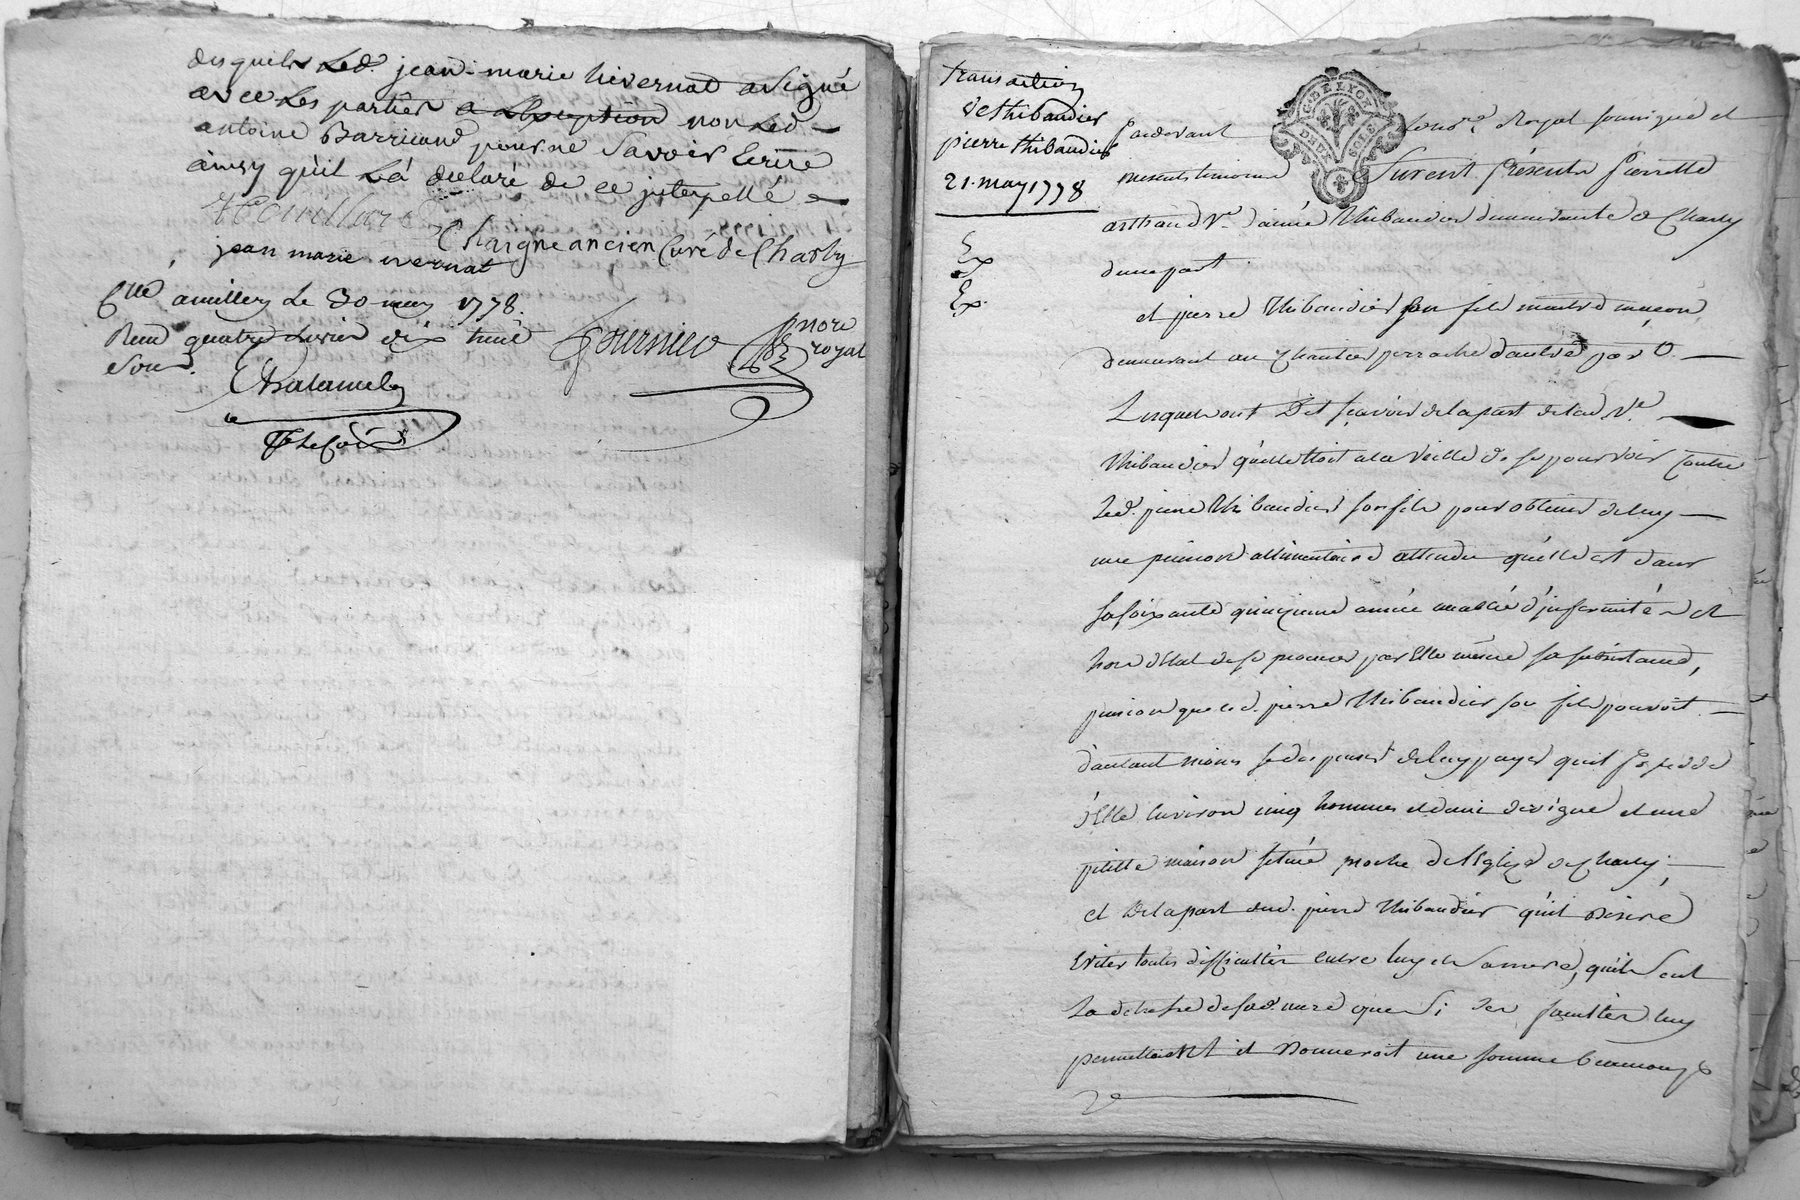 desquels led. jean-marie hivernat a signé
avec les parties a lexception non led
antoine Barricand pour ne savoir Ecrire
ainsy qu'il L'a declaré de ce interpellé
Chaigne ancien Curé de Charly
jean marie ivernat
Cllé a milley Le 30 may 1778.
Reçu quatre livres dix huit
sous.
Fournier nore
royal
Chalamel
transaction
de thibaudier
pierre thibaudier
21. may 1778
G. DE LYON
DEUX SOLS
Pardevant Royal soussigné et
presents temoins furent présents Pierrette
arthaud Ve. d'aimé Thibaudier demeurante a Charly
dune part
et pierre Thibaudier son fils maitre maçon
demeurant au chantier perrache d'autre part
Lesquels ont Dit sçavoir de la part de lad. Ve.
Thibaudier quelle etoit a la veille de se pourvoir contre
led. pierre Thibaudier son fils pour obtenir de luy
une pension allimentaire attendu quelle est dans
sa soixante quinzieme année accablée d'infirmités et
hors d'Etat de se procurer par Elle même sa subsistance,
pension que led. pierre Thibaudier son fils pouvoit
d'autant moins se dispenser de luy payer quil possede
d'Elle environ cinq hommes et demi de vigne et une
petitte maison située proche de l'Eglize de Charly;
et De la part dud. pierre Thibaudier qu'il Desire
Eviter toutes difficultés entre luy et sa mere, qu'il sent
La detresse de sad. mere que si ses facultés luy
permettoient il Donneroit une somme beaucoup